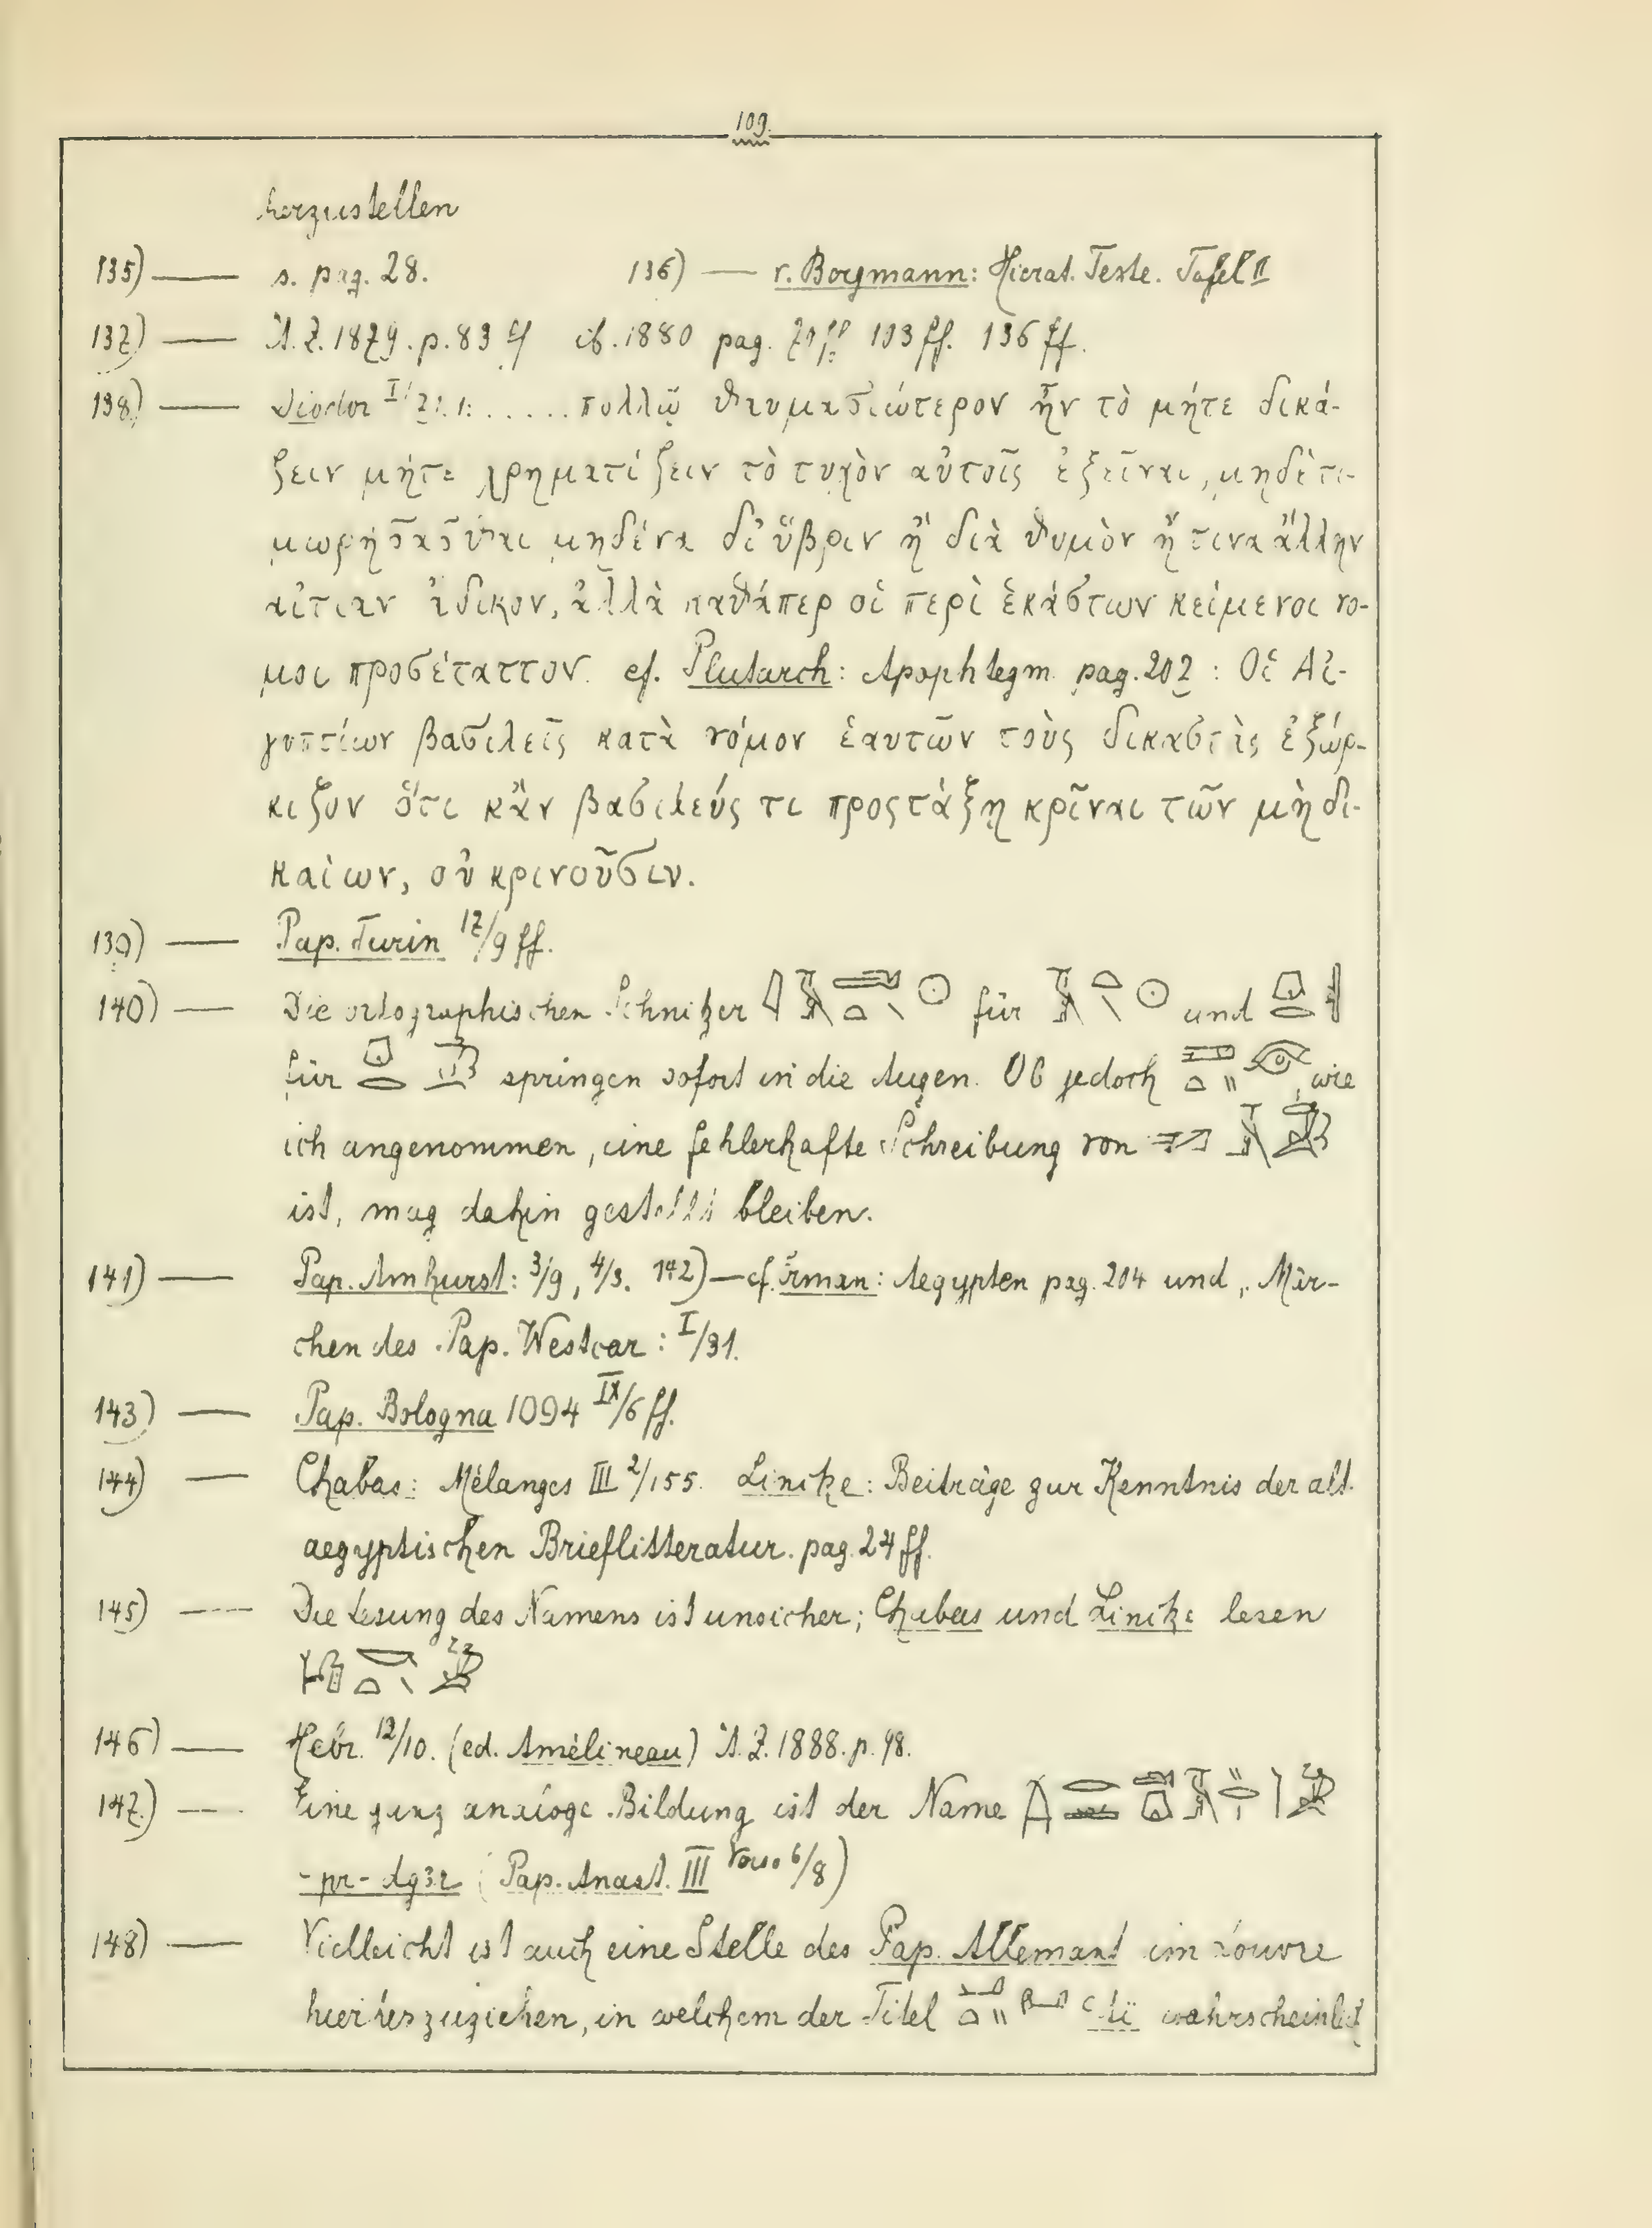 109.
herzustellen
135) — s. pag. 28. 136) — v. Bergmann: Hierat. Texte. Tafel II
137) — Ä.Z. 1879. p. 83 ff cf. 1880 pag. 103 ff. 136 ff.
138) — Diodor I/71.1: ..... πολλῷ θαυμασιώτερον ἦν τὸ μήτε δικά-
ζειν μήτε χρηματίζειν τὸ τυχὸν αὐτοῖς ἐξεῖναι, μηδὲ τι-
μωρήσασθαι μηδένα δι' ὕβριν ἢ διὰ θυμὸν ἤ τινα ἄλλην
αἰτίαν ἄδικον, ἀλλὰ καθάπερ οἱ περὶ ἑκάστων κείμενοι νό-
μοι προσέταττον. cf. Plutarch: Apophtegm. pag. 202: Οἱ Αἰ-
γυπτίων βασιλεῖς κατὰ νόμον ἑαυτῶν τοὺς δικαστὰς ἐξώρ-
κιζον ὅτι κἂν βασιλεύς τι προςτάξῃ κρῖναι τῶν μὴ δι-
καίων, οὐ κρινοῦσιν.
139) — Pap. Turin 17/9 ff.
140) — Die ortographischen Schnitzer für und
für springen sofort in die Augen. Ob jedoch , wie
ich angenommen, eine fehlerhafte Schreibung von
ist, mag dahin gestellt bleiben.
141) — Pap. Amhurst: 3/9, 4/3. 142) — cf. Erman: Aegypten pag. 204 und „Mär-
chen des Pap. Westcar: I/31.
143) — Pap. Bologna 1094 IX/6 ff.
144) — Chabas: Mélanges III 2/155. Lincke: Beiträge zur Kenntnis der alt-
aegyptischen Brieflitteratur. pag. 24 ff.
145) — Die Lesung des Namens ist unsicher; Chabas und Lincke lesen
146) — Hebr. 12/10. (ed. Amélineau) Ä.Z. 1888. p. 98.
147.) — Eine ganz analoge Bildung ist der Name
-pr-dg3i (Pap. Anast. III Verso 6/8)
148) — Vielleicht ist auch eine Stelle des Pap. Allemant im Louvre
hierherzuziehen, in welchem der Titel wahrscheinlich